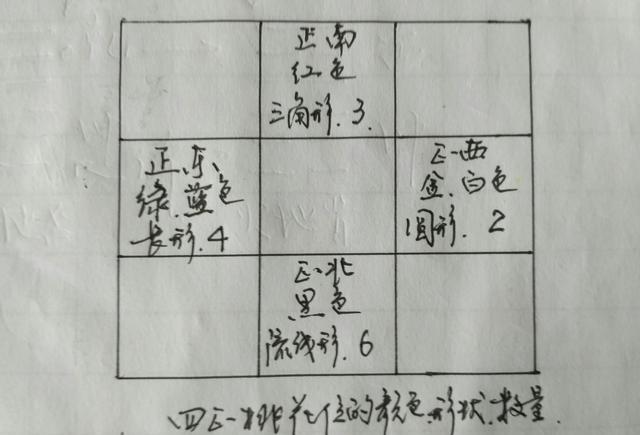 正南
红色
三角形.3.
正东
绿.蓝色
长形.4
正西
金.白色
圆形. 2
正北
黑色
流线形.6
四正桃花位的颜色.形状.数量.